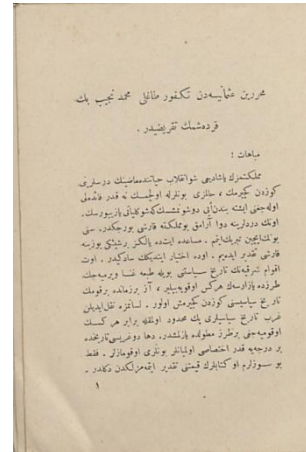 محررین عثمانیه‌دن تکفور طاغلی محمد نجیب بك
قرده‌شمك تقریضیدر .
مباهات !
مملکتمزك یاشادیغی شو انقلاب حیاتنده ماضینك درسلرینی
کوزدن کچیرمك ، حالزی بونلرله اولچمك نه قدر فائده‌لی
اوله‌جغنی ایشته بندن‌ای دوشونمشسك که شو کتابی یازییورسك .
اونك دردلرینه دوا آرامق بو مملکته قارشی بورجکدر . سنی
بونك ایچون تبریك ایتدم . مساعده ایت ده یالکز بر شیئکی بوزسه
قارشی تقدیر ایدەیم . اوده اختیار ایتدیکك ساده‌لکدر . اوت
اقوام شرقیه‌نك تاریخ سیاسیسی بویله طبعه غنا ویرمیه‌جك
طرزده یازیلرسه هرکس اوقویه‌بیلیر ، آز برزمانده برقومك
تاریخ سیاسیسنی کوزدن کچیرمش اولور . لسانمزه نقل ایدیلن
غرب تاریخ سیاسیلری پك محدود اولمقله برابر هر کسك
اوقومیه‌جغی برطرز مطولده یازلمشدر . دها دوغریسی تاریخده
بر درجه‌یه قدر اختصاصی اولمیانلر بونلری اوقومازلر . فقط
بو سوزلرم او کتابلرك قیمتنی تقدیر ایتمه‌مزلکدن دکلدر .
۱